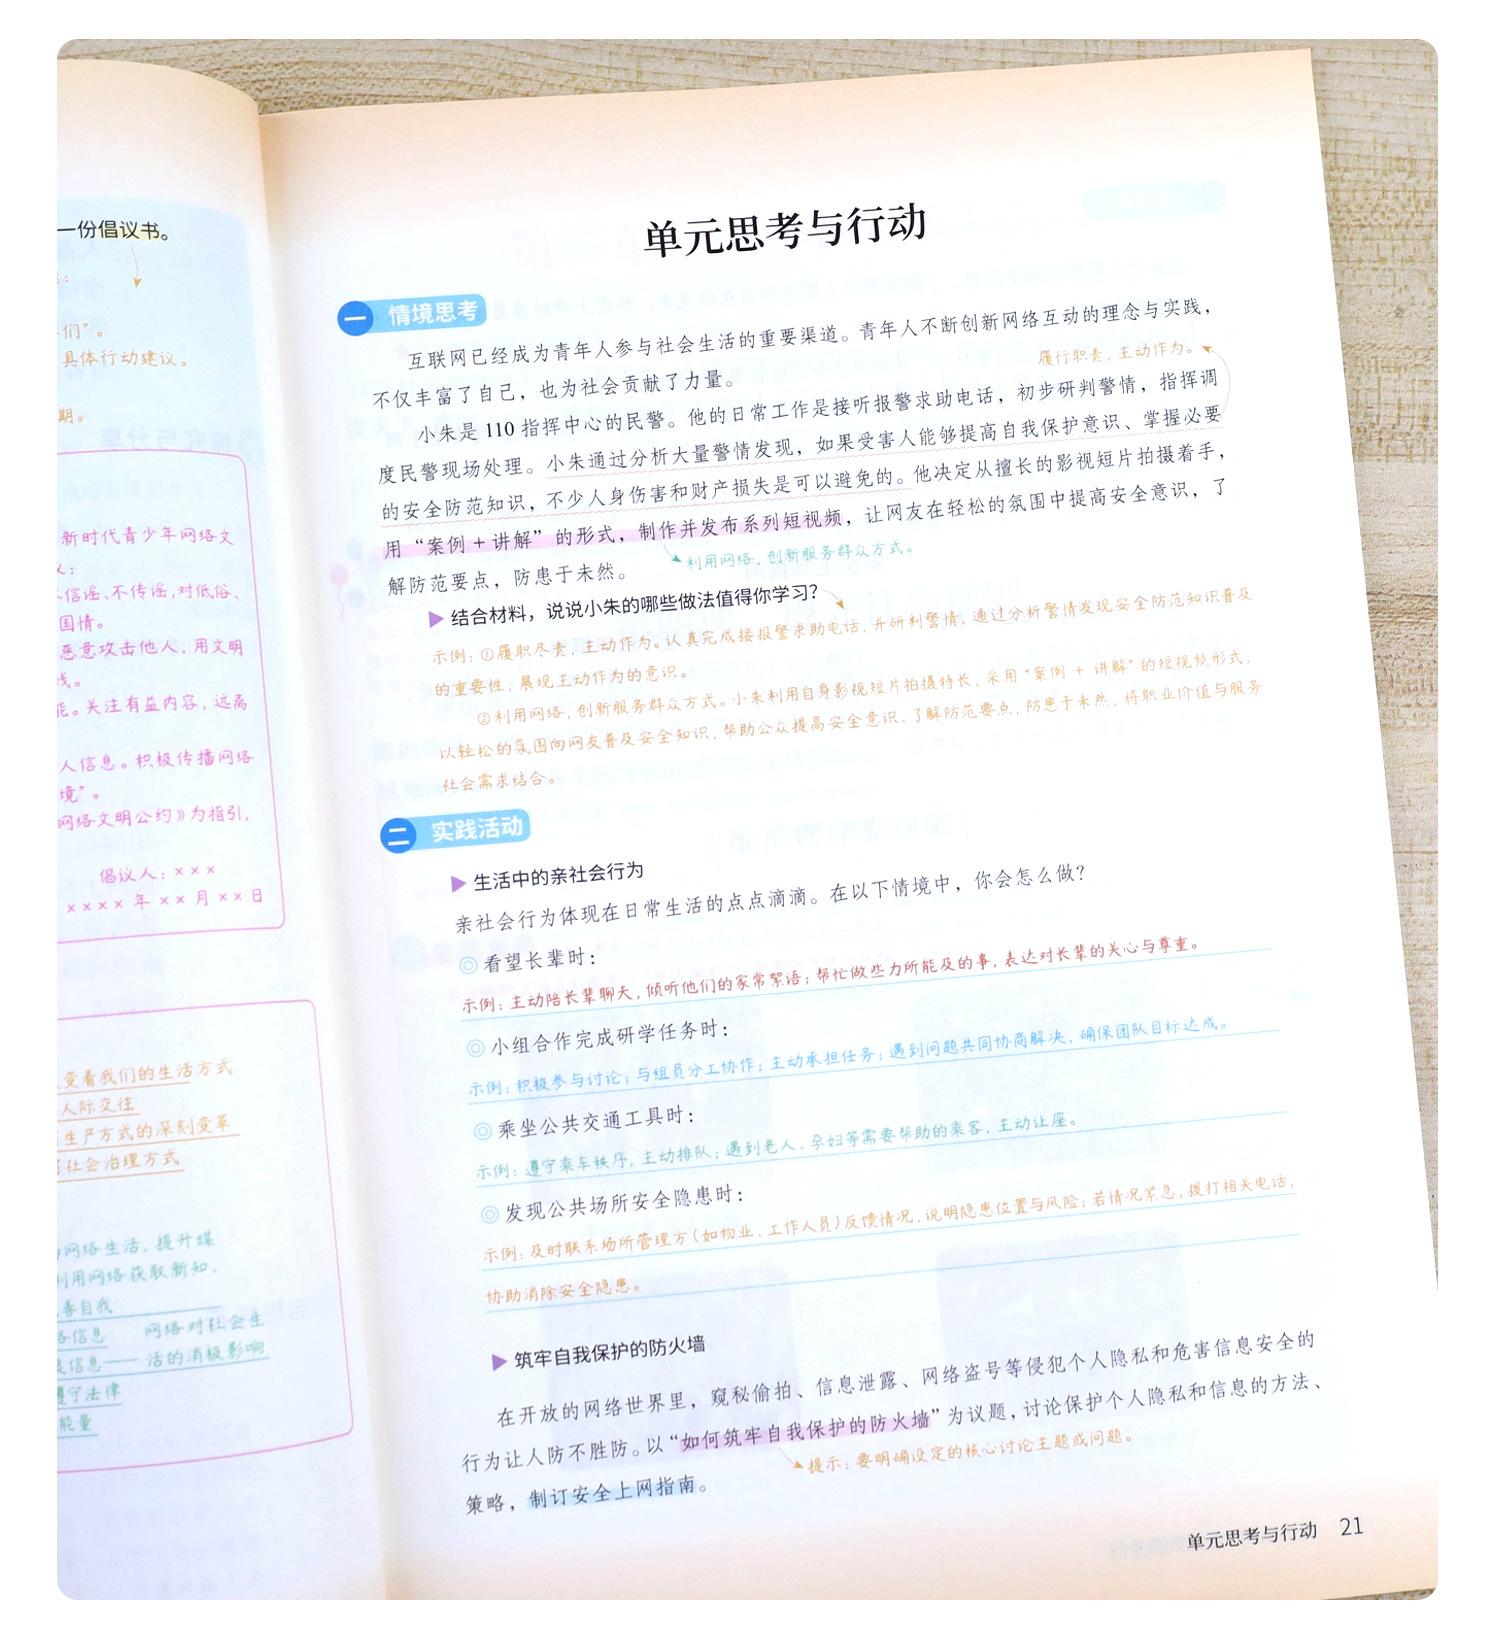 一份倡议书。
们”。
具体行动建议。
期。
新时代青少年网络文
信谣、不传谣,对低俗、
国情。
恶意攻击他人,用文明
线。
能。关注有益内容,远离
人信息。积极传播网络
境”。
网络文明公约》为指引,
倡议人:×××
××××年××月××日
变着我们的生活方式
人际交往
生产方式的深刻变革
社会治理方式
网络生活,提升媒
利用网络获取新知、
善自我
信息 网络对社会生
信息——活的消极影响
遵守法律
能量
单元思考与行动
一 情境思考
互联网已经成为青年人参与社会生活的重要渠道。青年人不断创新网络互动的理念与实践,
不仅丰富了自己,也为社会贡献了力量。
履行职责,主动作为。
小朱是110指挥中心的民警。他的日常工作是接听报警求助电话,初步研判警情,指挥调
度民警现场处理。小朱通过分析大量警情发现,如果受害人能够提高自我保护意识、掌握必要
的安全防范知识,不少人身伤害和财产损失是可以避免的。他决定从擅长的影视短片拍摄着手,
用“案例+讲解”的形式,制作并发布系列短视频,让网友在轻松的氛围中提高安全意识,了
解防范要点,防患于未然。
利用网络,创新服务群众方式。
▶ 结合材料,说说小朱的哪些做法值得你学习?
示例:①履职尽责,主动作为。认真完成接报警求助电话,并研判警情,通过分析警情发现安全防范知识普及
的重要性,展现主动作为的意识。
②利用网络,创新服务群众方式。小朱利用自身影视短片拍摄特长,采用“案例 + 讲解”的短视频形式,
以轻松的氛围向网友普及安全知识,帮助公众提高安全意识、了解防范要点,防患于未然,将职业价值与服务
社会需求结合。
二 实践活动
▶ 生活中的亲社会行为
亲社会行为体现在日常生活的点点滴滴。在以下情境中,你会怎么做?
◎ 看望长辈时:
示例:主动陪长辈聊天,倾听他们的家常絮语;帮忙做些力所能及的事,表达对长辈的关心与尊重。
◎ 小组合作完成研学任务时:
示例:积极参与讨论;与组员分工协作;主动承担任务;遇到问题共同协商解决,确保团队目标达成。
◎ 乘坐公共交通工具时:
示例:遵守乘车秩序,主动排队;遇到老人、孕妇等需要帮助的乘客,主动让座。
◎ 发现公共场所安全隐患时:
示例:及时联系场所管理方(如物业、工作人员)反馈情况,说明隐患位置与风险;若情况紧急,拨打相关电话,
协助消除安全隐患。
▶ 筑牢自我保护的防火墙
在开放的网络世界里,窥秘偷拍、信息泄露、网络盗号等侵犯个人隐私和危害信息安全的
行为让人防不胜防。以“如何筑牢自我保护的防火墙”为议题,讨论保护个人隐私和信息的方法、
提示:要明确设定的核心讨论主题或问题。
策略,制订安全上网指南。
单元思考与行动 21